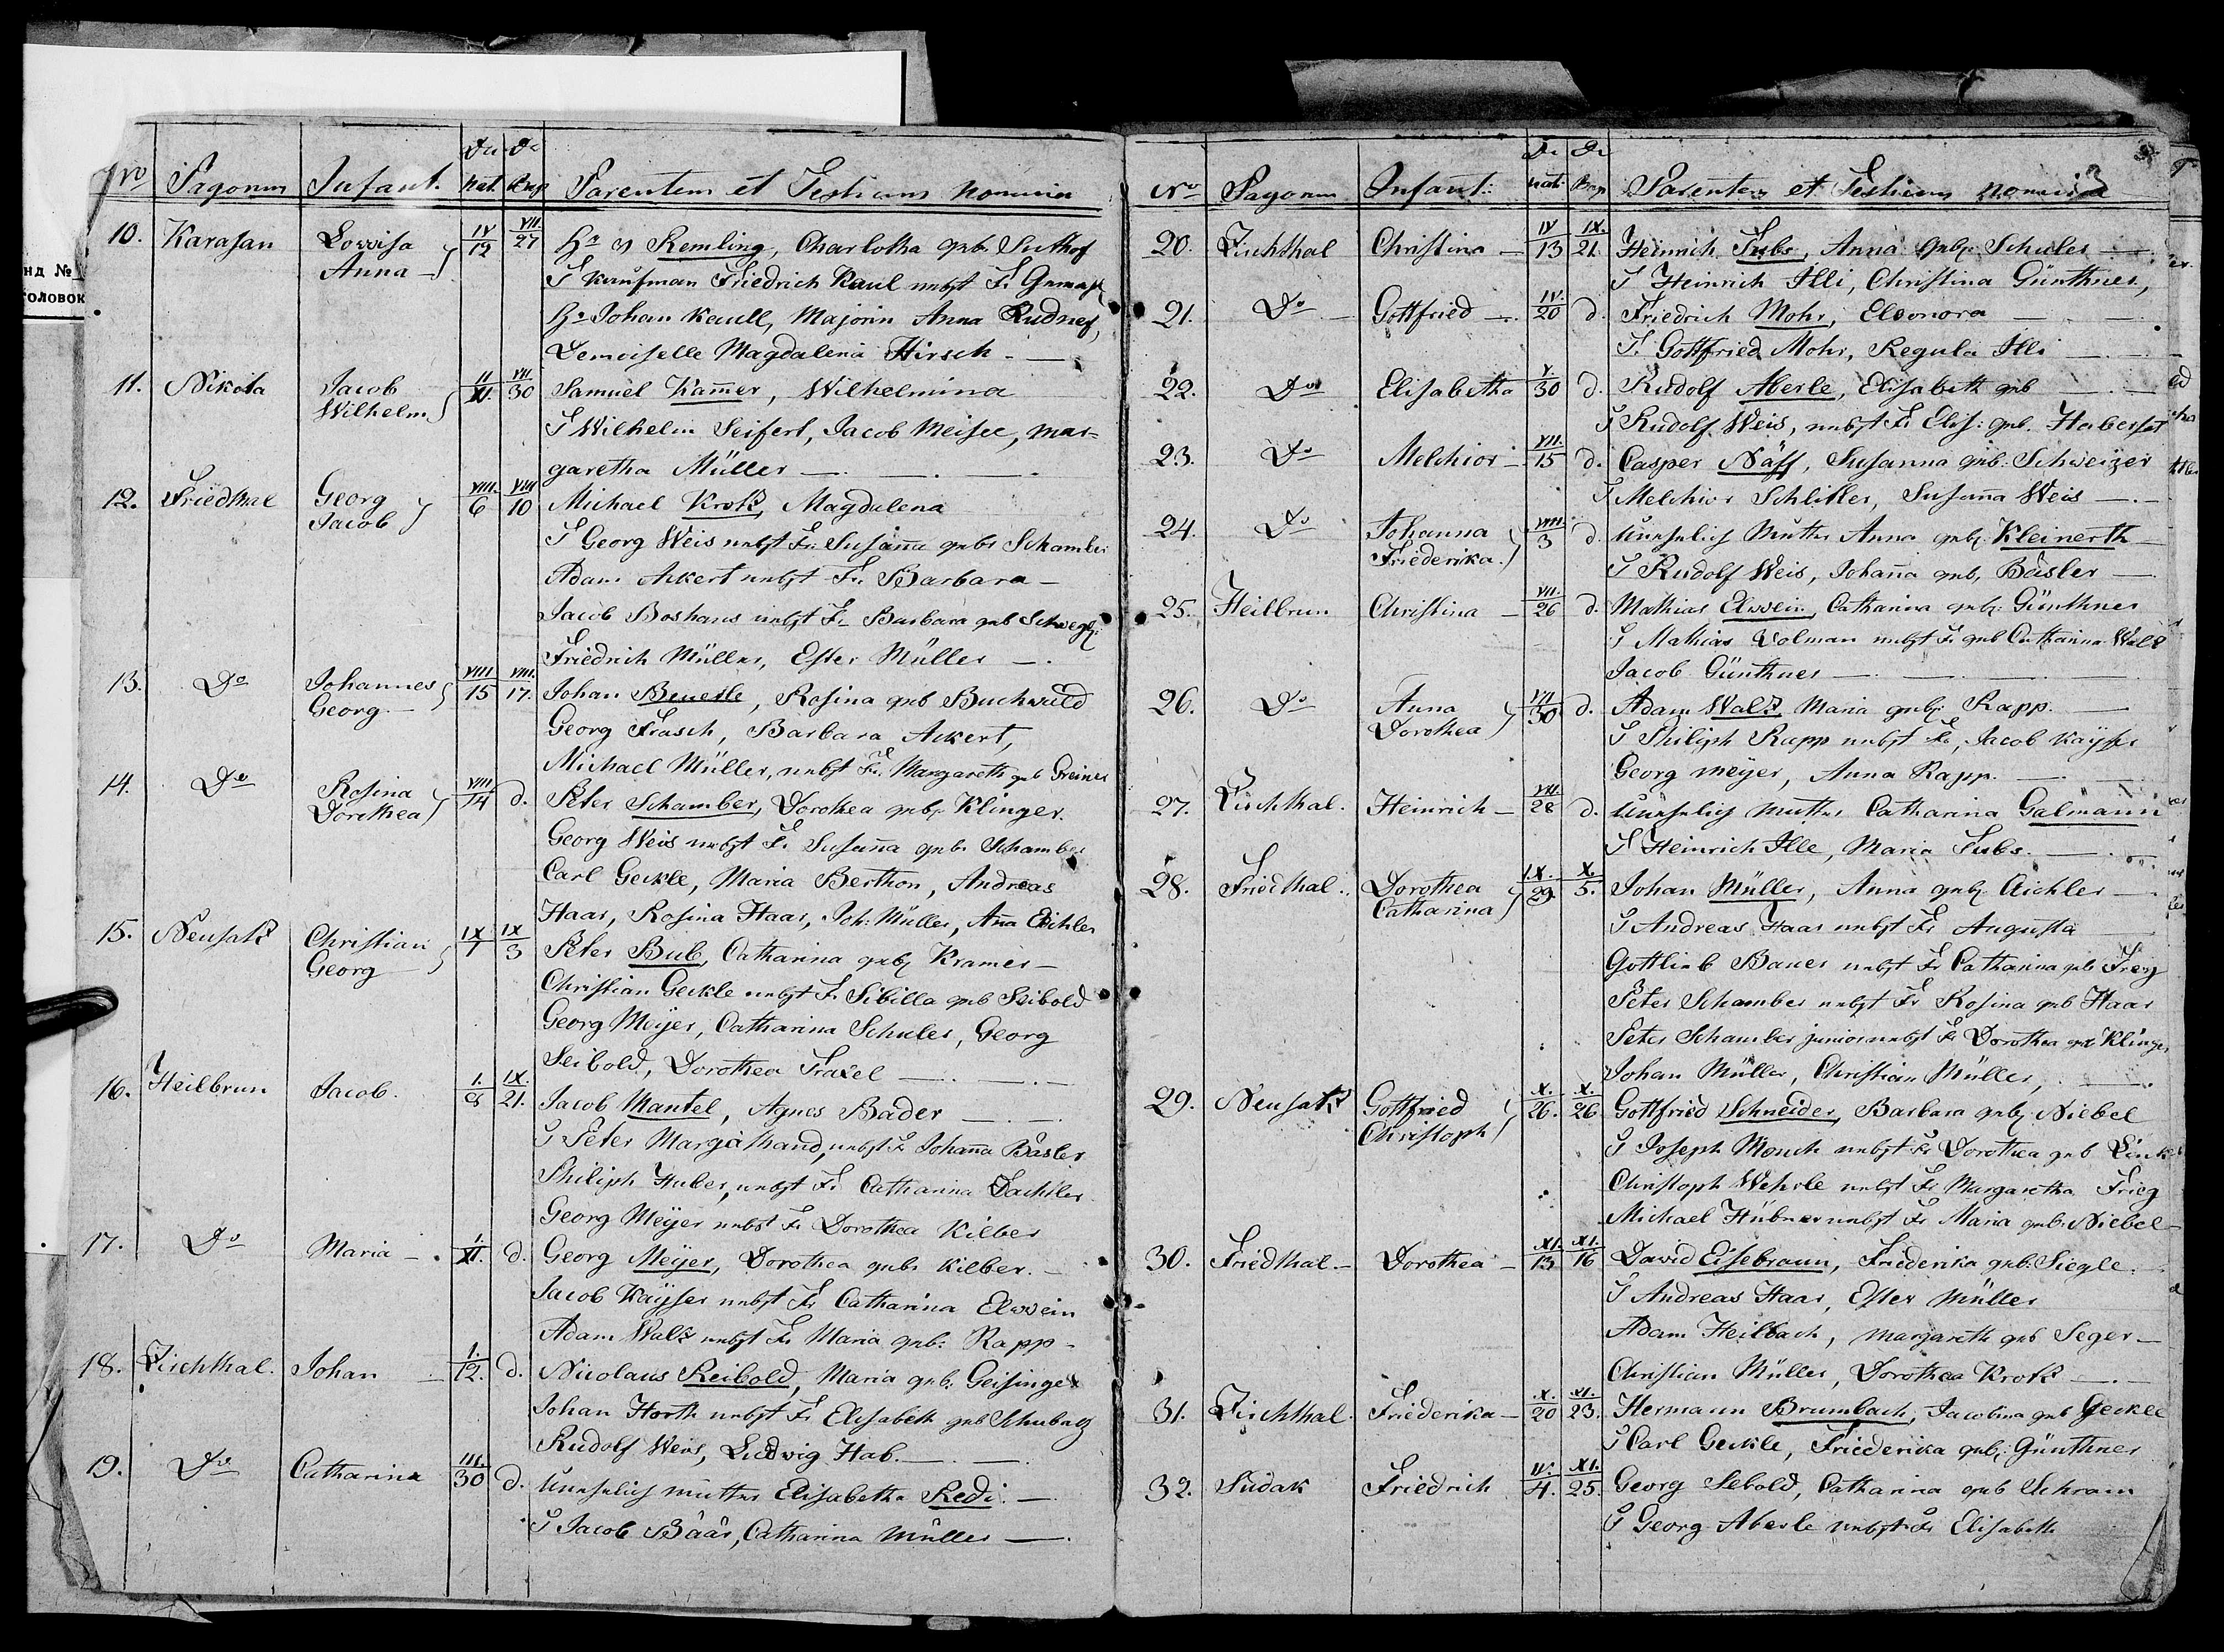 нд №
головок
No Pagorum Infant. Die Nat. Die Bap Parentum et Testium nomina
10. Karasan Lowisa Anna IV/12 VII/27 Hr v Remling, Charlotha geb. Suthof
T Kaufman Friedrich Kaul nebst Fr Gemahl
Hr Johan Kaull, Majorin Anna Rudnef,
Demoiselle Magdalena Hirsch
11. Nikita Jacob Wilhelm II/XI. VII/30 Samuel Kam̄er, Wilhelmina
T Wilhelm Seifert, Jacob Meisee, Mar-
garetha Müller
12. Friedthal Georg Jacob VIII./6 VIII/10 Michael Krotz, Magdalena
T Georg Weis nebst Fr. Susan̄a geb. Schamber
Adam Ackert nebst Fr. Barbara
Jacob Boshans nebst Fr Barbara geb Schwegl.
Friedrich Müller, Ester Müller
13. Do Johannes Georg VIII/15 VIII./17. Johan Bruerle, Rosina geb Buchwald
Georg Frasch, Barbara Ackert,
Michael Müller, nebst Fr. Margareth geb Greiner
14. Do Rosina Dorethea VIII/14 d. Peter Schamber, Dorothea geb. Klinger.
Georg Weis nebst Fr Susan̄a geb. Schamber
Carl Geckle, Maria Berthon, Andreas
Haar, Rosina Haar, Joh: Müller, An̄a Eichler
15. Neusatz Christian Georg IX/1 IX/3 Peter Bub, Catharina geb. Kramer
Christian Geckle nebst Fr Sibilla geb Seibold
Georg Meÿer, Catharina Schuler, Georg
Seibold, Dorothea Traxel
16. Heilbrun Jacob. 1./8 IX./21. Jacob Mantel, Agnes Bader
T Peter Margathand, nebst Fr Johan̄a Bäsler
Philiph Huber, nebst Fr. Catharina Dachtler
Georg Meÿer nebst Fr Dorothea Kilber
17. Do Maria 1./XI. d. Georg Meÿer, Dorothea geb. Kilber.
Jacob Kaÿser nebst Fr Catharina Elwein
Adam Walz nebst Fr Maria geb: Rapp
18. Zirchthal. Johan 1./12. d. Nicolaus Reibold, Maria geb: Geisinger
Johan Horth nebst Fr Elisabeth geb Schubert
Rudolf Weis, Ludwig Hab.
19. Do Catharina III./30 d. Unehelich mutter Elisabetha Redi.
T Jacob Bäär, Catharina Müller
No Pagorum Infant: Die nati Die Bap Parentum et Testium nomina
20. Zirchthal Christina IV/13 IX./21. Heinrich Fubs, Anna geb. Schuler
T Heinrich Illi, Christina Günthner,
21. Do Gottfried IV./20 d. Friedrich Mohr, Eleonora
T. Gottfried Mohr, Regula Illi
22. Do Elisabetha V./30 d. Rudolf Aberle, Elisabeth geb
T Rudolf Weis, nebst Fr Elis: geb. Habersat
23. Do Melchior VII./15 d. Casper Näff, Susanna geb: Schweizer
T Melchior Schlitler, Susan̄a Weis
24. Do Johanna Friederika VIII./3 d. Unehelich Mutter Anna geb. Kleinerth
T Rudolf Weis, Johan̄a geb. Bäsler
25. Heilbrun Christina VII./26 d. Mathias Elwein, Catharina geb: Günthner
T Mathias Volman nebst Fr geb Catharina Walz
Jacob Günthner
26. Do Anna Dorothea VII/30 d. Adam Walz Maria geb. Rapp.
T Philiph Rapp nebst Fr, Jacob Kaÿser
Georg meÿer, Anna Rapp.
27. Zirchthal. Heinrich VIII./28 d. Unehelich mutter Catharina Galmann
T Heinrich Ille, Maria Fubs.
28. Friedthal. Dorothea Catharina IX./29. X./5. Johan Müller, Anna geb. Aichler
T Andreas Haar nebst Fr Augusta
Gottlieb Bauer nebst Fr Catharina geb Freg
Peter Schamber nebst Fr Rosina geb Haar
Peter Schamber junior nebst Fr Dorothea geb Klinger
Johan Müller, Christian Müller,
29. Neusatz Gottfried Christoph X./26. X./26 Gottfried Schneider, Barbara geb. Niebel
T Joseph Monch nebst Fr Dorothea geb Link
Christoph Wehrle nebst Fr Margaretha Frieg
Michael Hübner nebst Fr Maria geb. Niebel
30. Friedthal. Dorothea XI./13 XI./16 David Eisebraun, Friederika geb. Siegle
T Andreas Haar, Ester Müller
Adam Heilbach, Margareth geb Seger
Christian Müller, Dorothea Krotz
31. Zirchthal. Friederika X./20 XI./23. Hermann Brumbach, Jacobina geb Geckle
T Carl Geckle, Friederika geb: Günthner
32. Sudak Friedrich IV./4. XI./25. Georg Sebold, Catharina geb Schram
T Georg Aberle nebst Fr Elisabeth